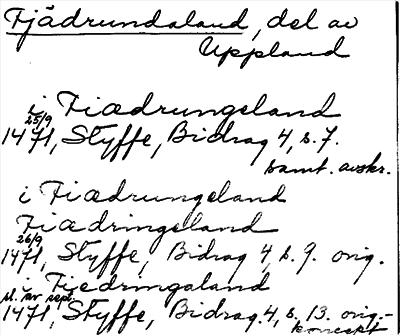 Fjädrundaland, del av
Uppland
i Fiædrungeland
25/9
1471, Styffe, Bidrag 4, s. 7.
samt. avskr.
i Fiædrungeland
Fiædringeland
26/9
1471, Styffe, Bidrag 4, s. 9. orig.
i Fjedringaland
sl. av sept.
1471, Styffe, Bidrag 4, s. 13. orig.-
koncept